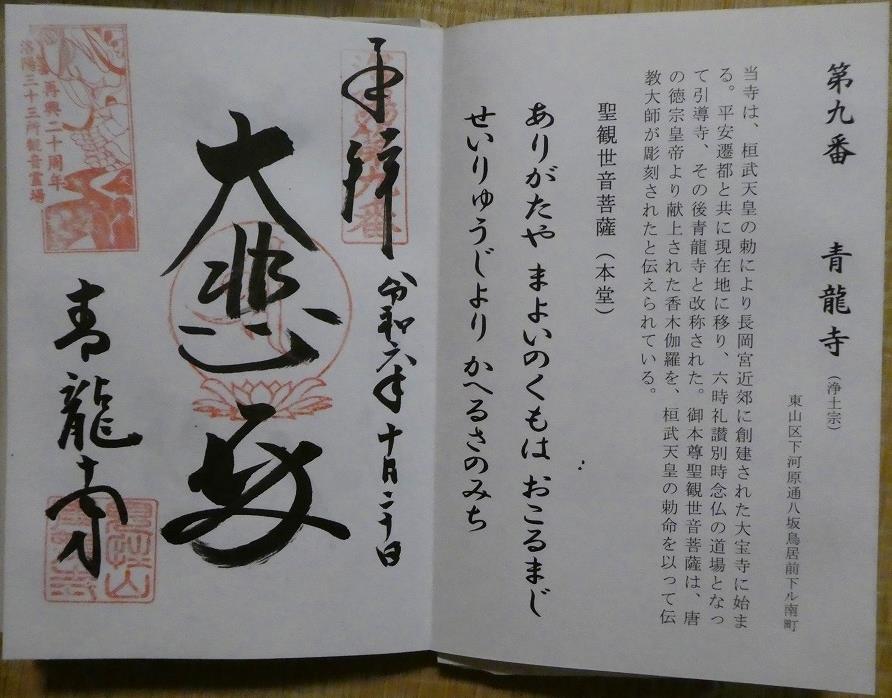 第九番 青龍寺（浄土宗）
東山区下河原通八坂鳥居前下ル南町
当寺は、桓武天皇の勅により長岡宮近郊に創建された大宝寺に始ま
る。平安遷都と共に現在地に移り、六時礼讃別時念仏の道場となっ
て引導寺、その後青龍寺と改称された。御本尊聖観世音菩薩は、唐
の徳宗皇帝より献上された香木伽羅を、桓武天皇の勅命を以って伝
教大師が彫刻されたと伝えられている。
聖観世音菩薩（本堂）
ありがたや まよいのくもは おこるまじ
せいりゅうじより かへるさのみち
奉拝
洛陽第九番
令和六年十月二十日
大悲殿
青龍寺
再興二十周年
洛陽三十三所観音霊場